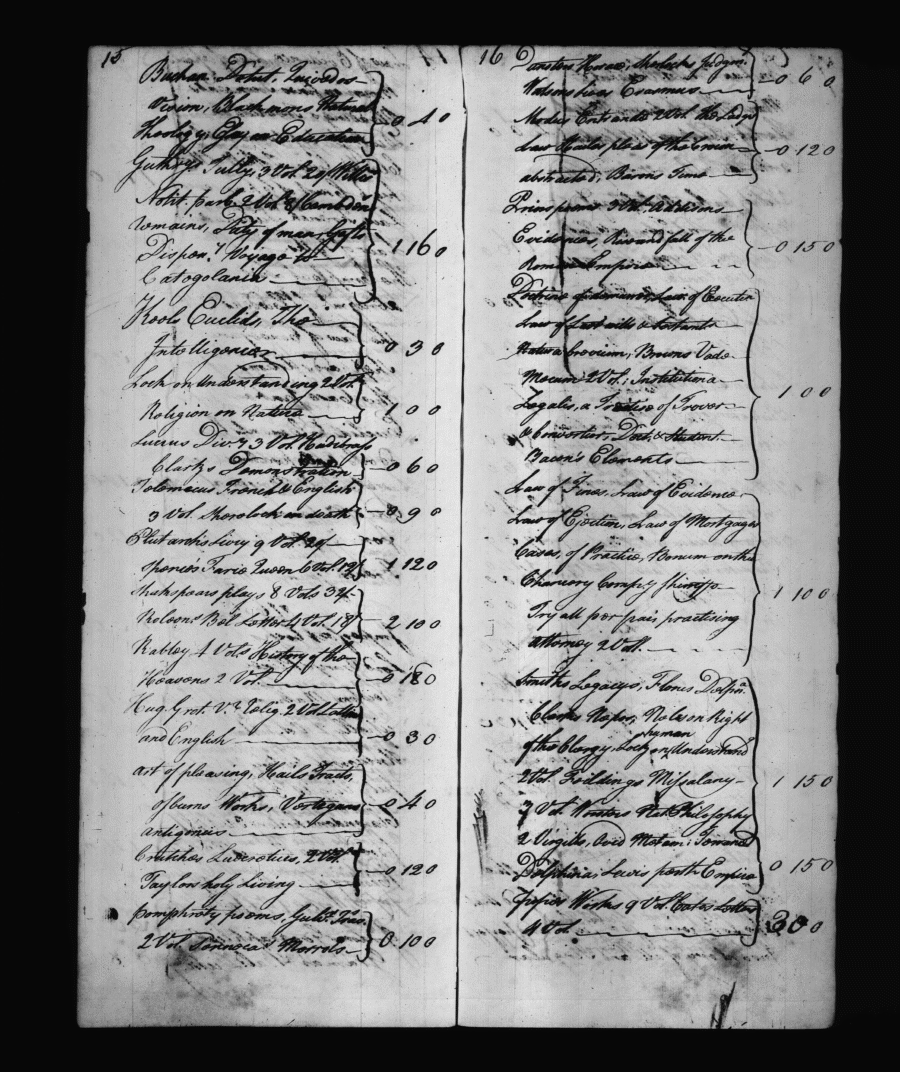 15
Buchan: Detect, Quivedos
Vision, Blackmons Natural
Theology, Essay on Education } 0 4 0
Guthrys Tully, 3 Vol. 20/ Willis
Notit, parl 2 Vol. 8/ Cambdens
remains, Duty of man, Gifts
Dispen.y Voyage to } 1 16 0
Catogolania
Keels Euclid, The
Intelligencer } 0 3 0
Lock on Understanding 2 Vol.
Religion on Nature } 1 0 0
Lucrus Div.y 3 Vol. Hudibrass
Clarks Demonstration } 0 6 0
Telemacus French & English
3 Vol. Sherolock on death } 0 9 0
Plutarchs Livey 9 Vol. 20/
Spencers Farie Queen 6 Vol. 12/ } 1 12 0
Shakspears plays 8 Vols 32/
Roleons Bel Letter 4 Vol. 18/ } 2 10 0
Rabley 4 Vols History of the
Heavens 2 Vol. } 0 18 0
Hug. Grot. V.r Relig. 2 Vol. Latin
and English } 0 3 0
art of pleasing, Hails Tracts,
Osburns Works, Verstegans
antiquies } 0 4 0
Crutches Lucretius, 2 Vol.
Taylors holy Living } 0 12 0
pomphrety poems, Gul.r Trav.
2 Vol. Senneca's Morrols } 0 10 0
16
Dunsters Horace, Sherlocks Judgm.t
Erasmus } 0 6 0
Modus Entrande 2 Vol. the Ledg.r
Law Hawles pleas of the Crown
abstracted, Barons Time } 0 12 0
3 Vol. Addisons
Evidences, Rise and fall of the
Roman Empire } 0 15 0
Doctrine of demurrers, Law of Executrs
Law of Last wills & testamts
Natura brevium, Browns Vade
Mecum 2 Vol. Institutiona
Legalis, a Treatise of Trover } 1 0 0
& Convertion, Doct. & Student
Bacon's Elements
Law of Fines, Law of Evidence
Law of Ejection, Law of Mortgages
Cases, of Practice, Bonum on the
Chancery Comp.y } 1 10 0
Tryall per pais practising
attorney 2 Voll.
Smiths Legacys, Florus Dolpin.a
Clarks Nepos, Nolas on Right
of the Clergy, Lock on human Understand.g
2 Vol. Feildings Missalany } 1 15 0
3 Vol. Worsters Nat. Philosophy
2 Virgils, Ovid Metam: Terrance
Dolphinia, Lewis posth Empire } 0 15 0
Popes Works 9 Vol. Catos Letters
4 Vol. } 3 0 0